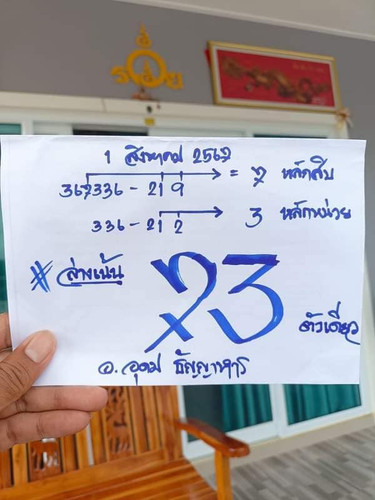 รวย
1 สิงหาคม 2567
367336 - 219 = 7 หลักสิบ
336 - 212 3 หลักหน่วย
# ล่างเน้น 73 ตัวเดียว
อ. อุดม ธัญญาหาร